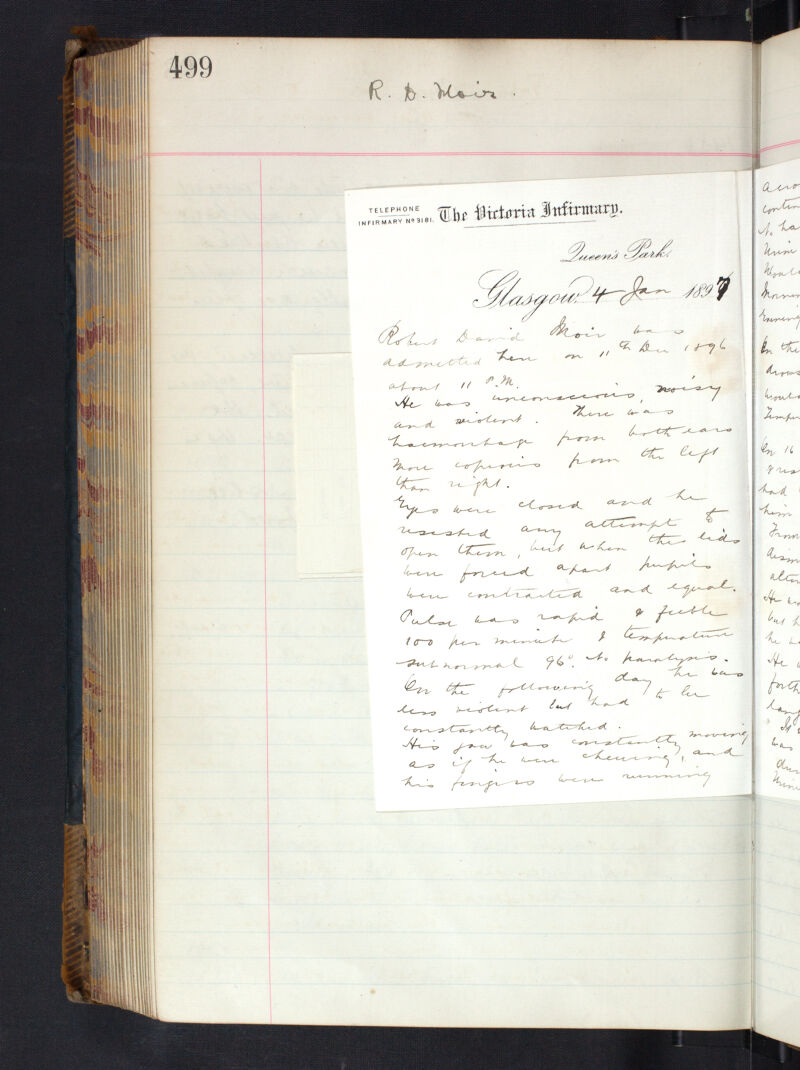 499
R. D. Moir.
TELEPHONE
INFIRMARY Nº 9181.
The Victoria Infirmary.
Queen's Park,
Glasgow, 4 Jan 1897
Robert David Moir was
admitted here on 11th Dec 1896
about 11 P.M.
He was unconscious, noisy
and violent. There was
haemorrhage from both ears
more copious from the left
than right.
Eyes were closed and he
resisted any attempt to
open them, but when the lids
were forced apart pupils
were contracted and equal.
Pulse was rapid & feeble
100 per minute & temperature
subnormal 96°. No paralysis.
On the following day he was
less violent but had to be
constantly watched.
His jaw was constantly moving
as if he were chewing, and
his fingers were running